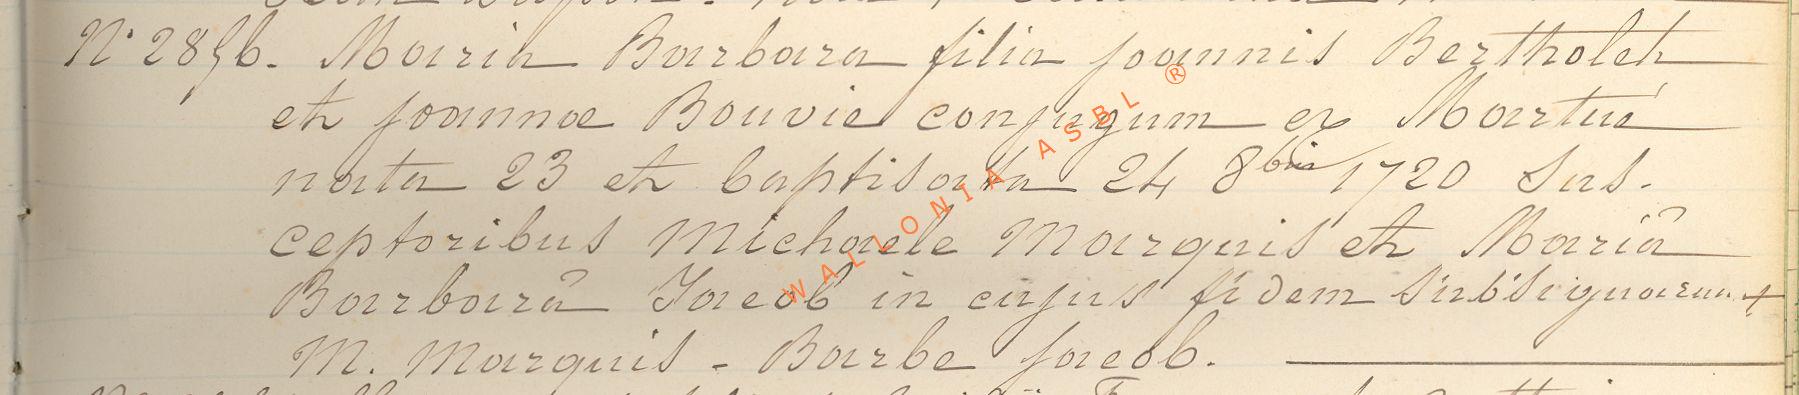 N° 2856. Maria Barbara filia Joannis Bertholet
et Joannæ Bouvie conjugum ex Martué
nata 23 et baptisata 24 8bris 1720 Sus-
ceptoribus Michaele Marquis et Mariâ
Barbarâ Jacob in cujus fidem subsignarunt
M. Marquis - Barbe Jacob.
WALLONIA ASBL ®